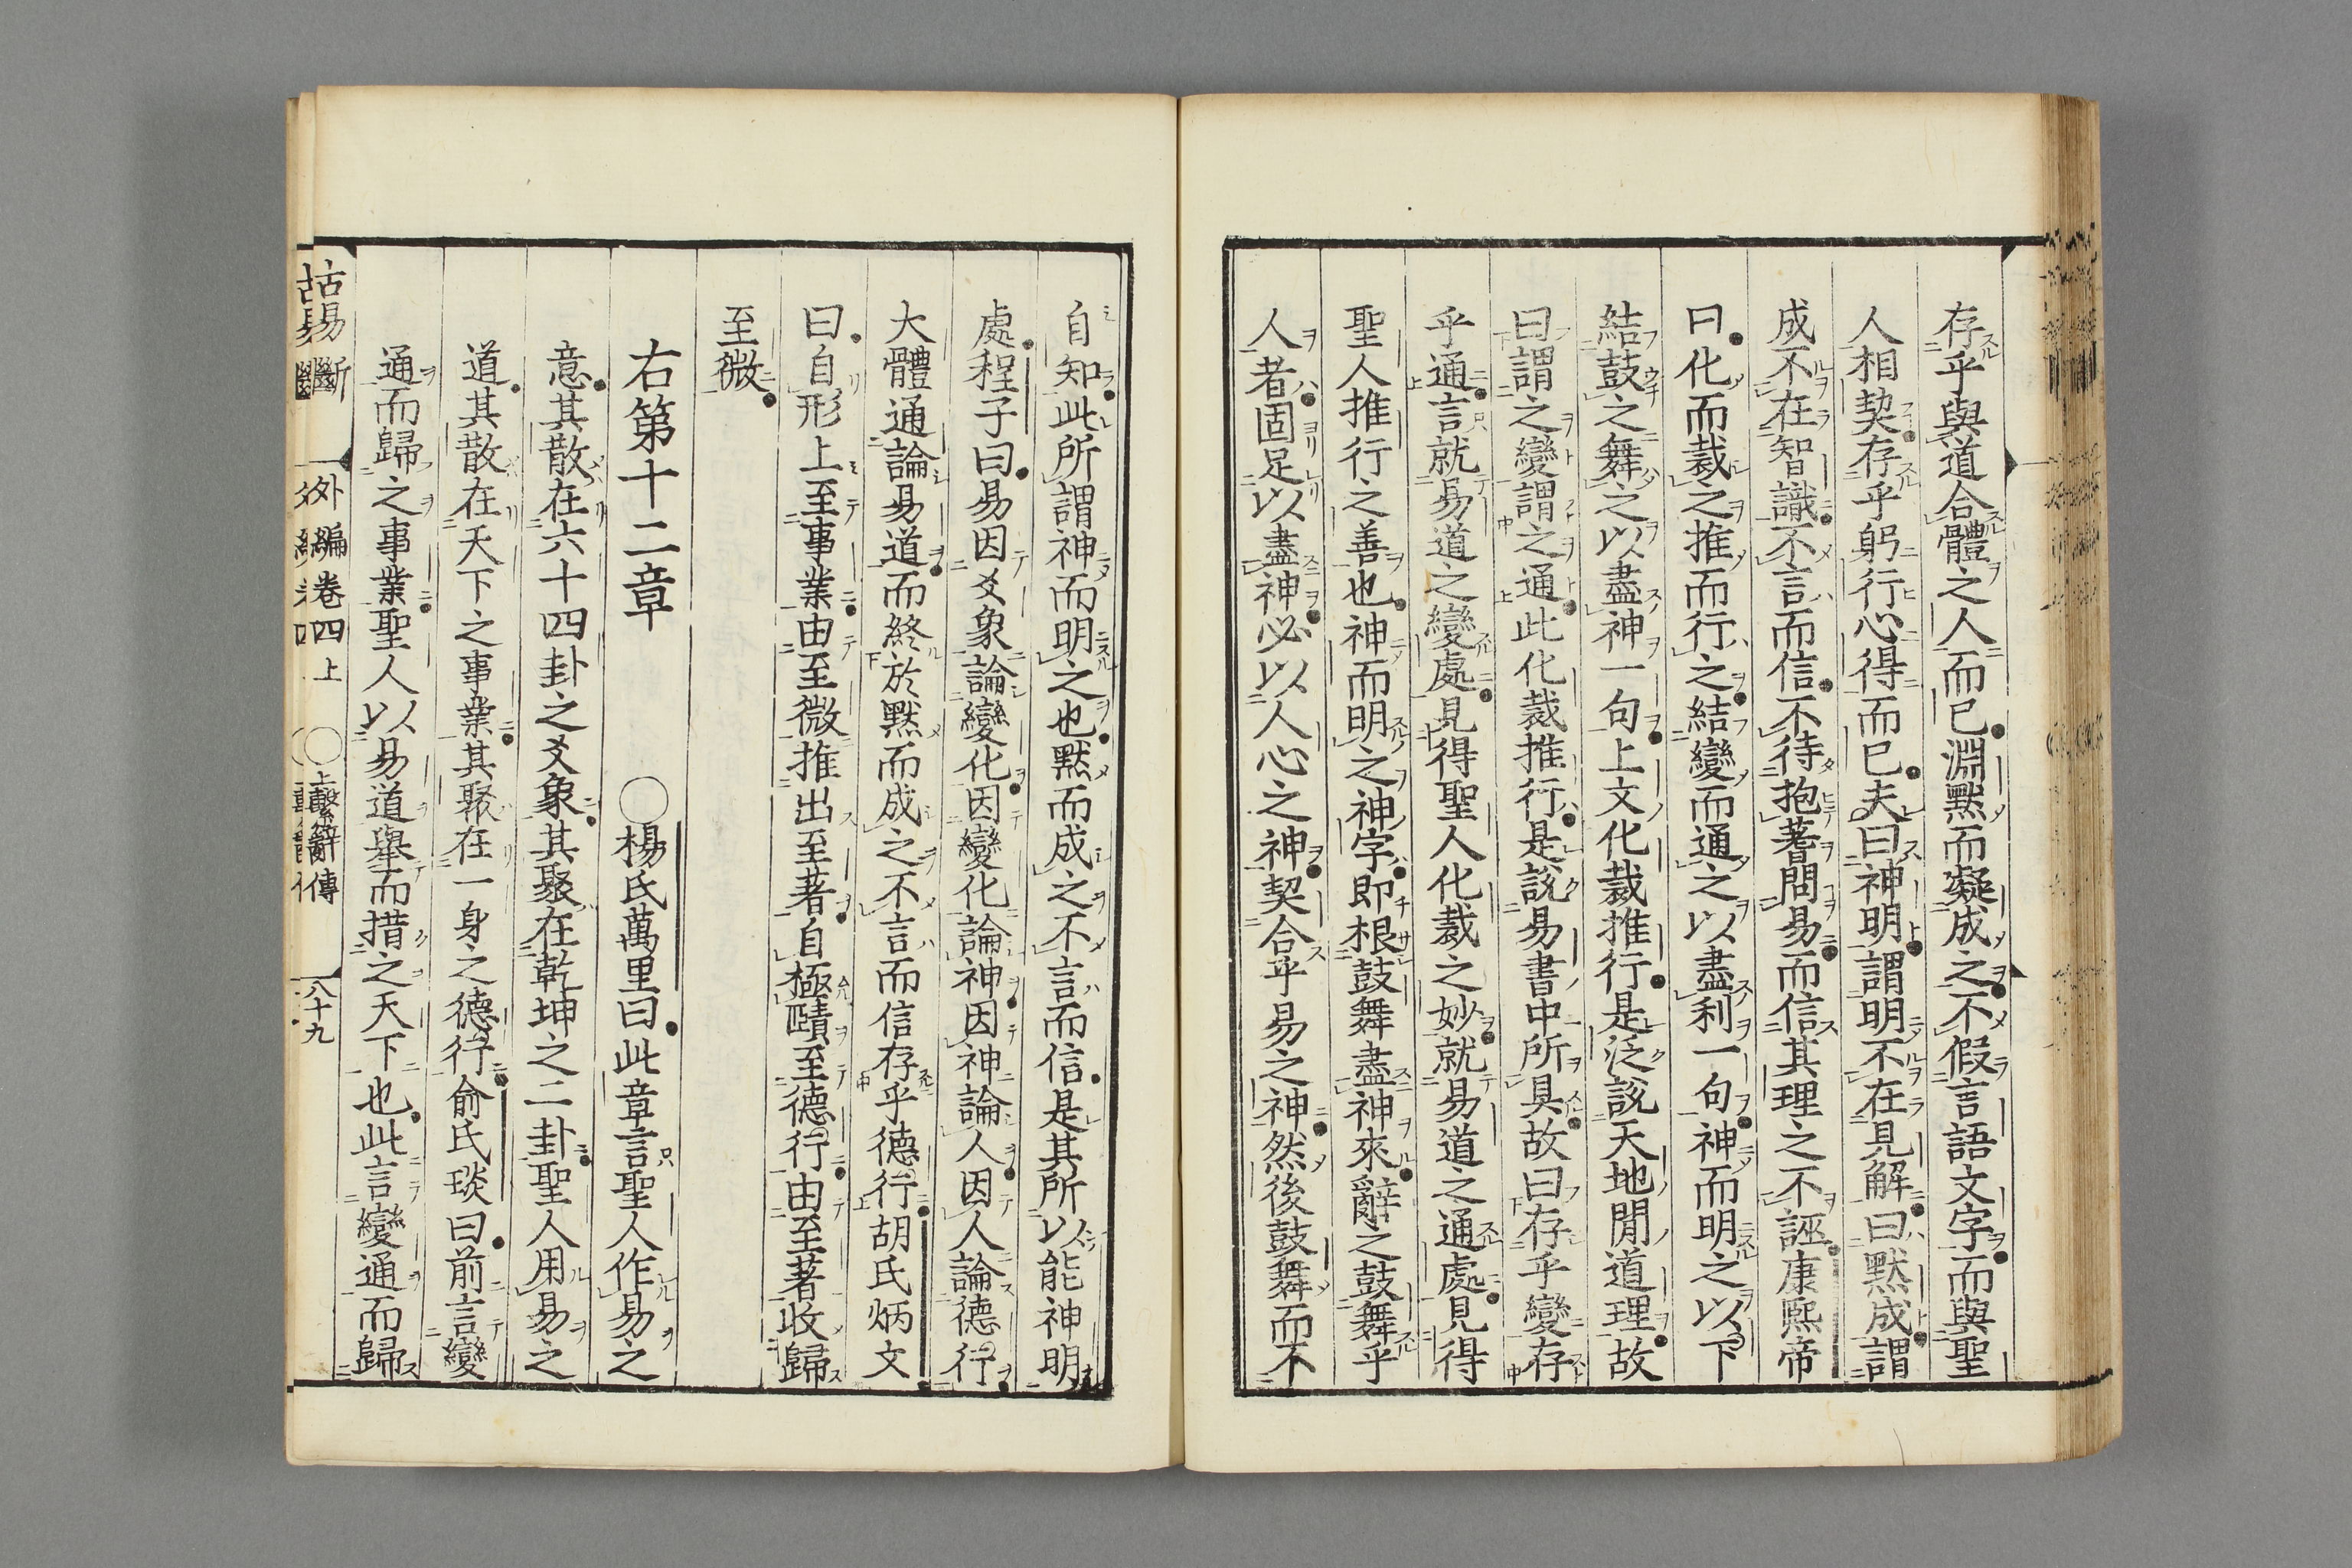 存乎與道合體之人而已淵默而凝成之不假言語文字而與聖
人相契存乎躬行心得而已夫曰神明謂明不在見解曰默成謂
成不在智識不言而信不待抱蓍問易而信其理之不誣康熙帝
曰化而裁之推而行之結變而通之以盡利一句神而明之以下
結鼓之舞之以盡神一句上文化裁推行是泛說天地閒道理故
曰謂之變謂之通此化裁推行是說易書中所具故曰存乎變存
乎通言就易道之變處見得聖人化裁之妙就易道之通處見得
聖人推行之善也神而明之神字即根鼓舞盡神來辭之鼓舞乎
人者固足以盡神必以人心之神契合乎易之神然後鼓舞而不
自知此所謂神而明之也默而成之不言而信是其所以能神明
處程子曰易因爻象論變化因變化論神因神論人因人論德行
大體通論易道而終於默而成之不言而信存乎德行胡氏炳文
曰自形上至事業由至微推出至著自極賾至德行由至著收歸
至微
右第十二章 ○楊氏萬里曰此章言聖人作易之
意其散在六十四卦之爻象其聚在乾坤之二卦聖人用易之
道其散在天下之事業其聚在一身之德行俞氏琰曰前言變
通而歸之事業聖人以易道舉而措之天下也此言變通而歸
古易斷 外編卷四上 ○上繫辭傳 八十九